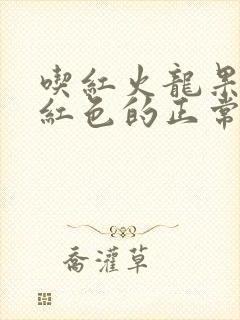 喫紅火龍果
紅色的正常
喬灌草